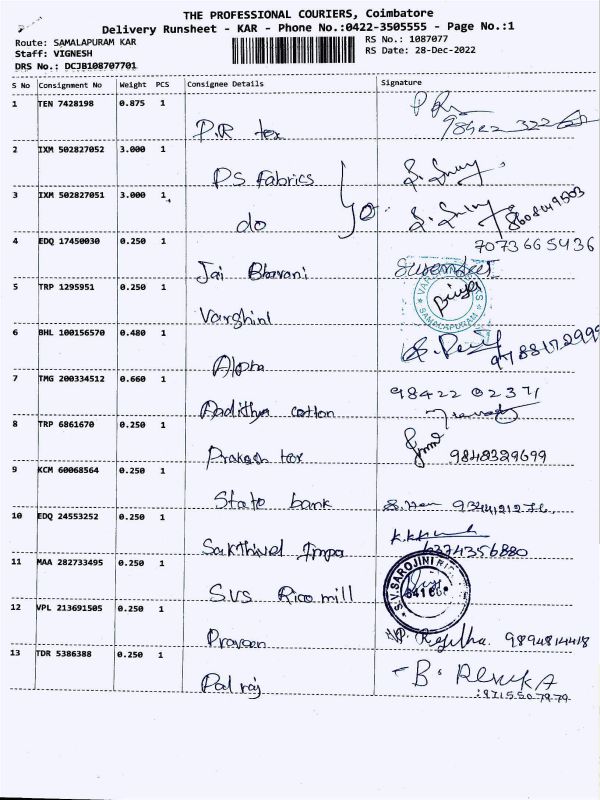 THE PROFESSIONAL COURIERS, Coimbatore
Delivery Runsheet - KAR - Phone No.:0422-3505555 - Page No.:1
Route: SAMALAPURAM KAR
RS No.: 1087077
Staff: VIGNESH
RS Date: 28-Dec-2022
DRS No.: DCJB108707701
S No Consignment No Weight PCS Consignee Details Signature
1 TEN 7428198 0.875 1
P.R tex
2 IXM 502827052 3.000 1
PS Fabrics
3 IXM 502827051 3.000 1
do
8608449503
4 EDQ 17450030 0.250 1
7073665436
Jai Bhavani
5 TRP 1295951 0.250 1
SAMALAPURAM
Varshini
6 BHL 100156570 0.480 1
Alpha
7 TMG 200334512 0.660 1
98422 02371
Aadithya cotton
8 TRP 6861670 0.250 1
Prakash tex
9848329699
9 KCM 60068564 0.250 1
State bank
10 EDQ 24553252 0.250 1
Sakthivel Impa
6374356880
11 MAA 282733495 0.250 1
S.V.SAROJINI
SVS Rice mill
12 VPL 213691505 0.250 1
Praveen
9894814418
13 TDR 5386388 0.250 1
Pal raj
B. RENUKA
97155 50 79 79